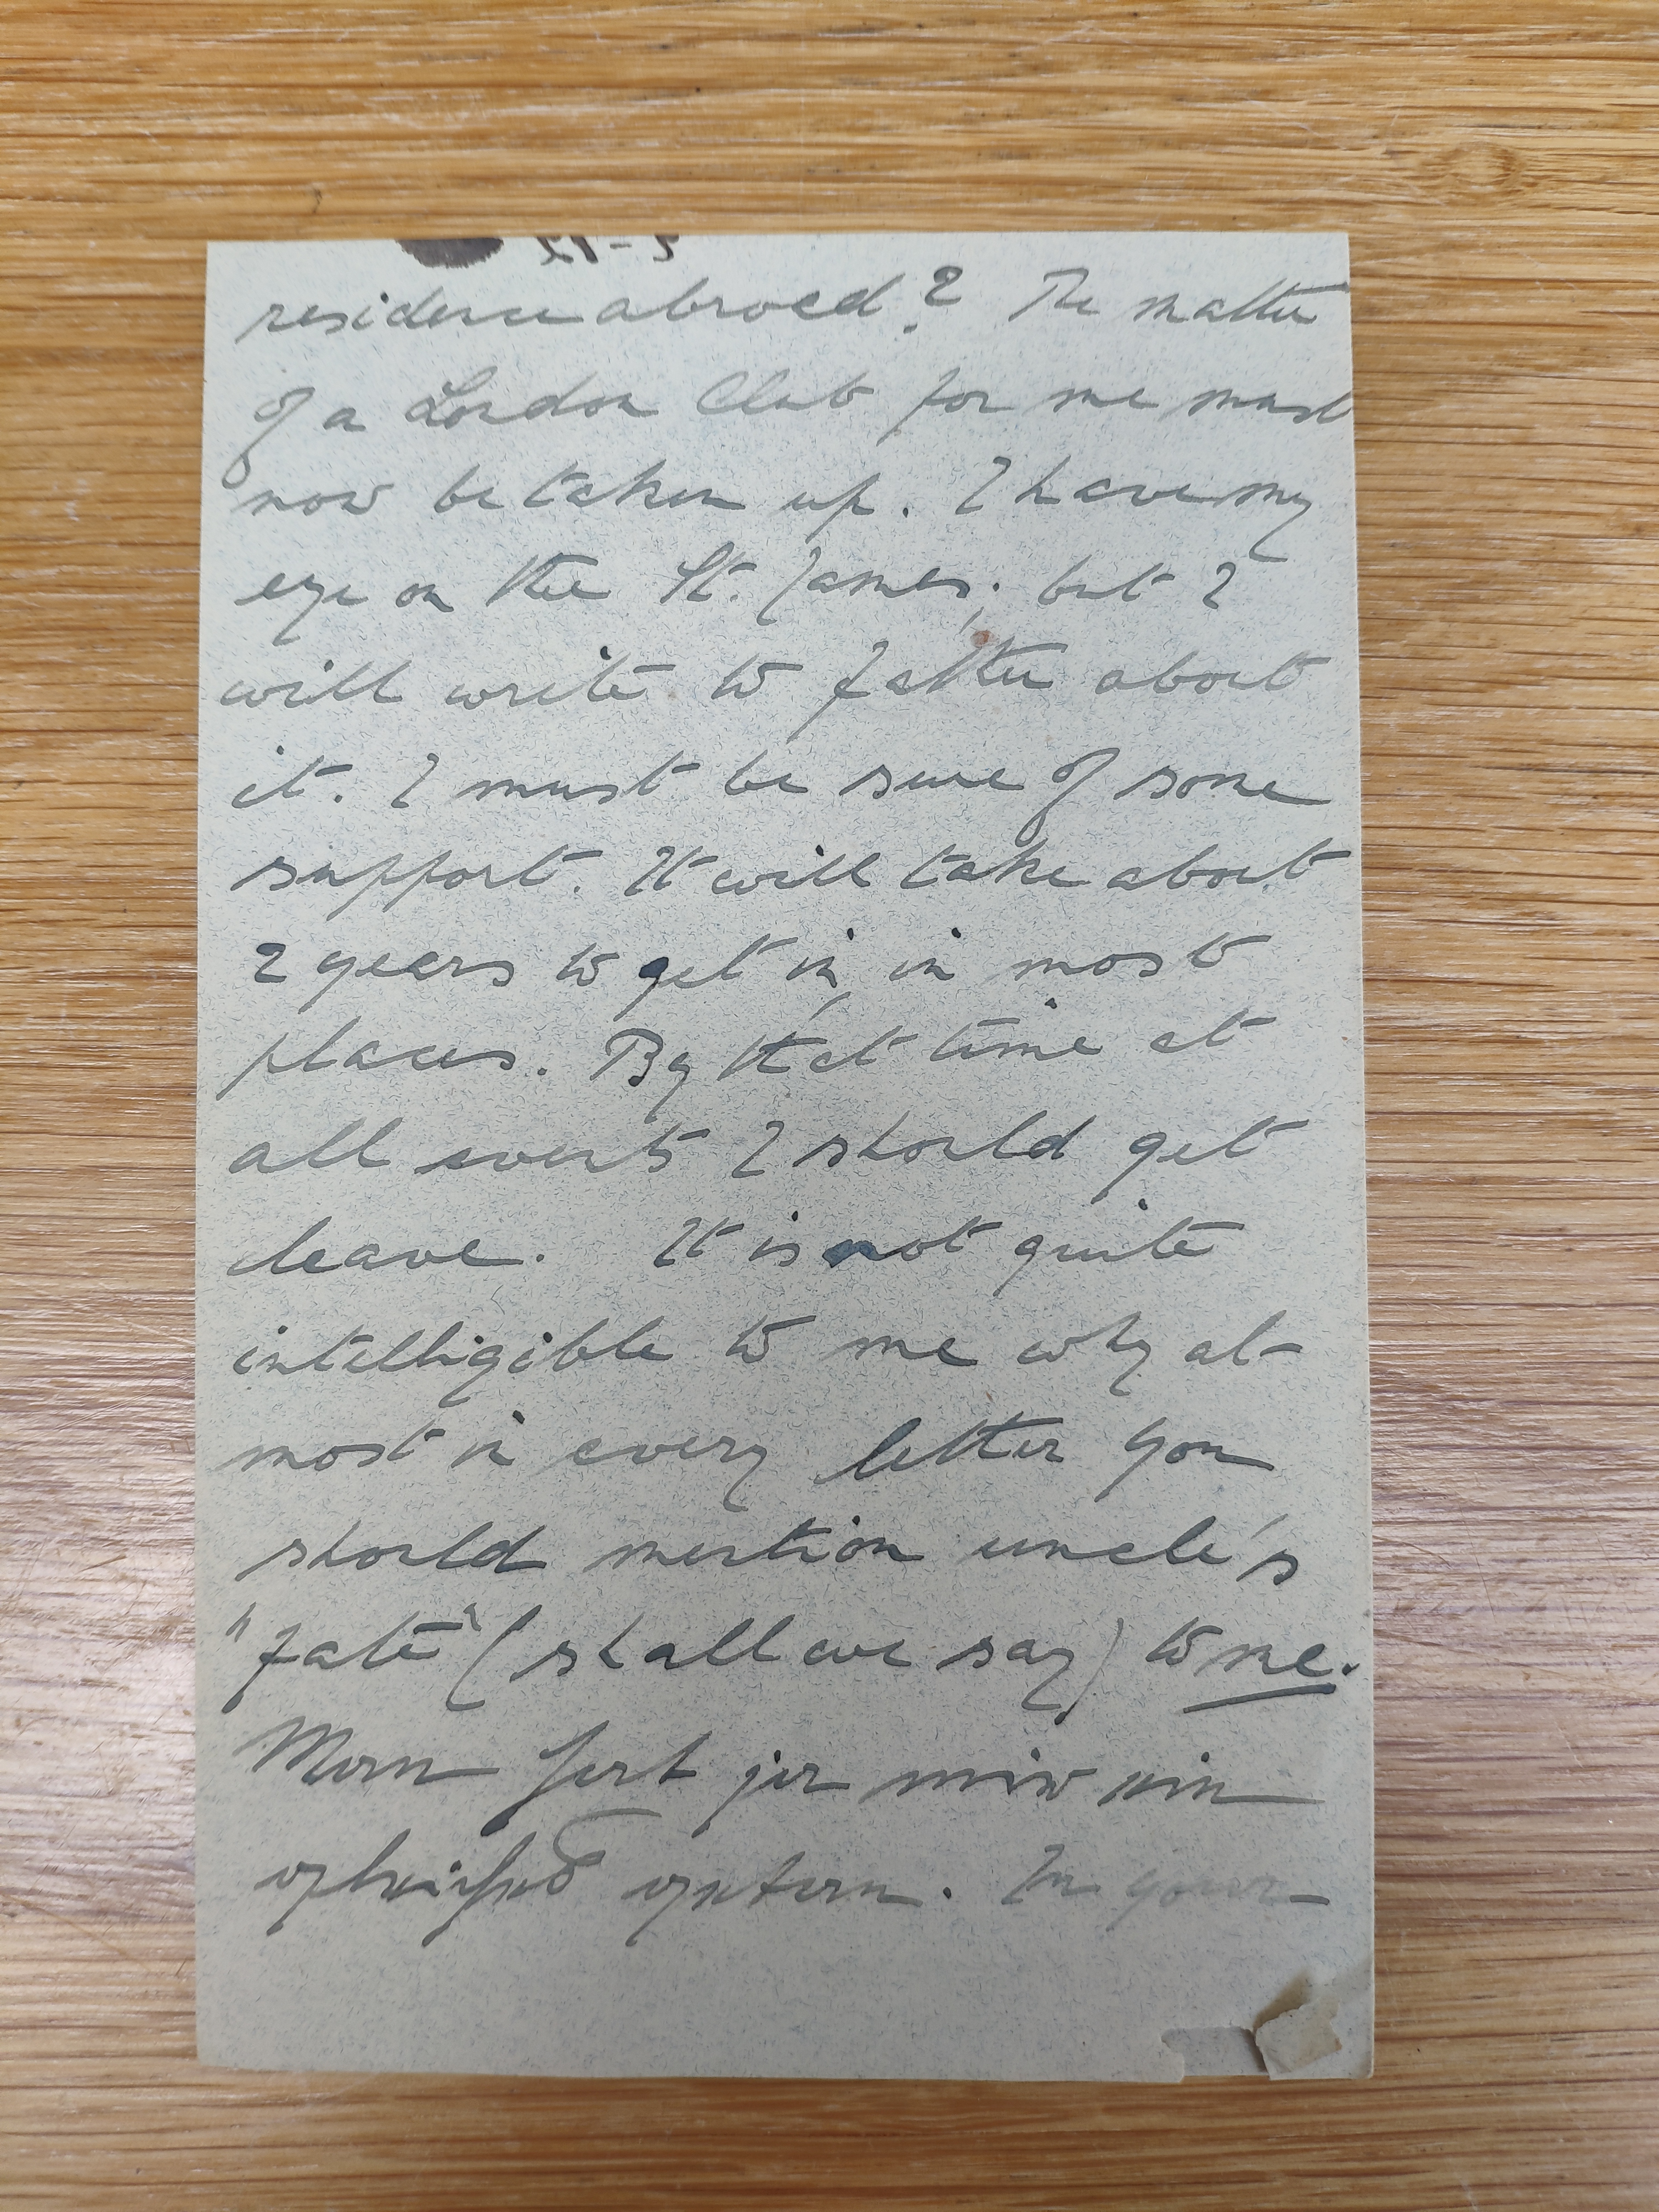 residence abroad? The matter
of a London Club for me must
now be taken up. I have my
eye on the St. James; but I
will write to father about
it. I must be sure of some
support. It will take about
2 years to get in, in most
places. By that time at
all events I should get
leave. It is not quite
intelligible to me why al-
most in every letter you
should mention uncle's
"fate" (shall we say) to me.
In your